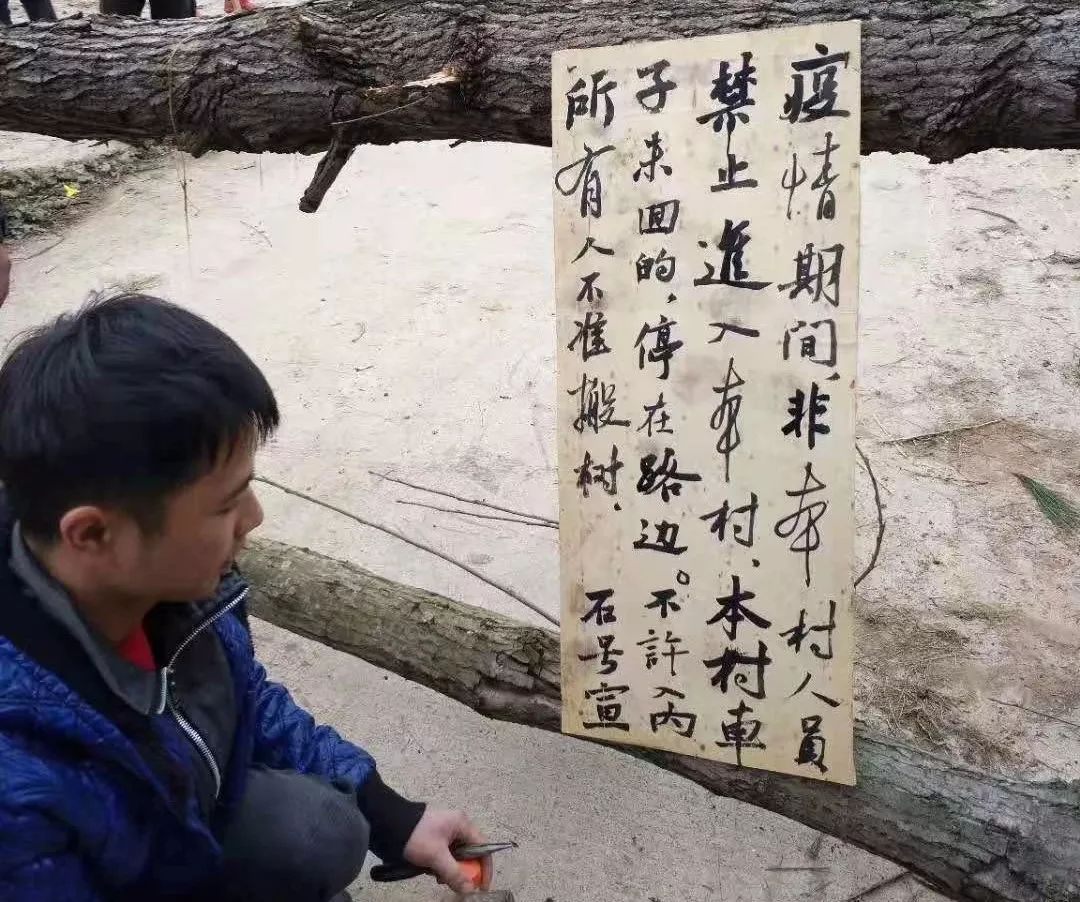 疫情期间，非本村人员
禁止進入本村、本村車
子未回的，停在路边。不許入内
所有人不准搬树、
石号宣